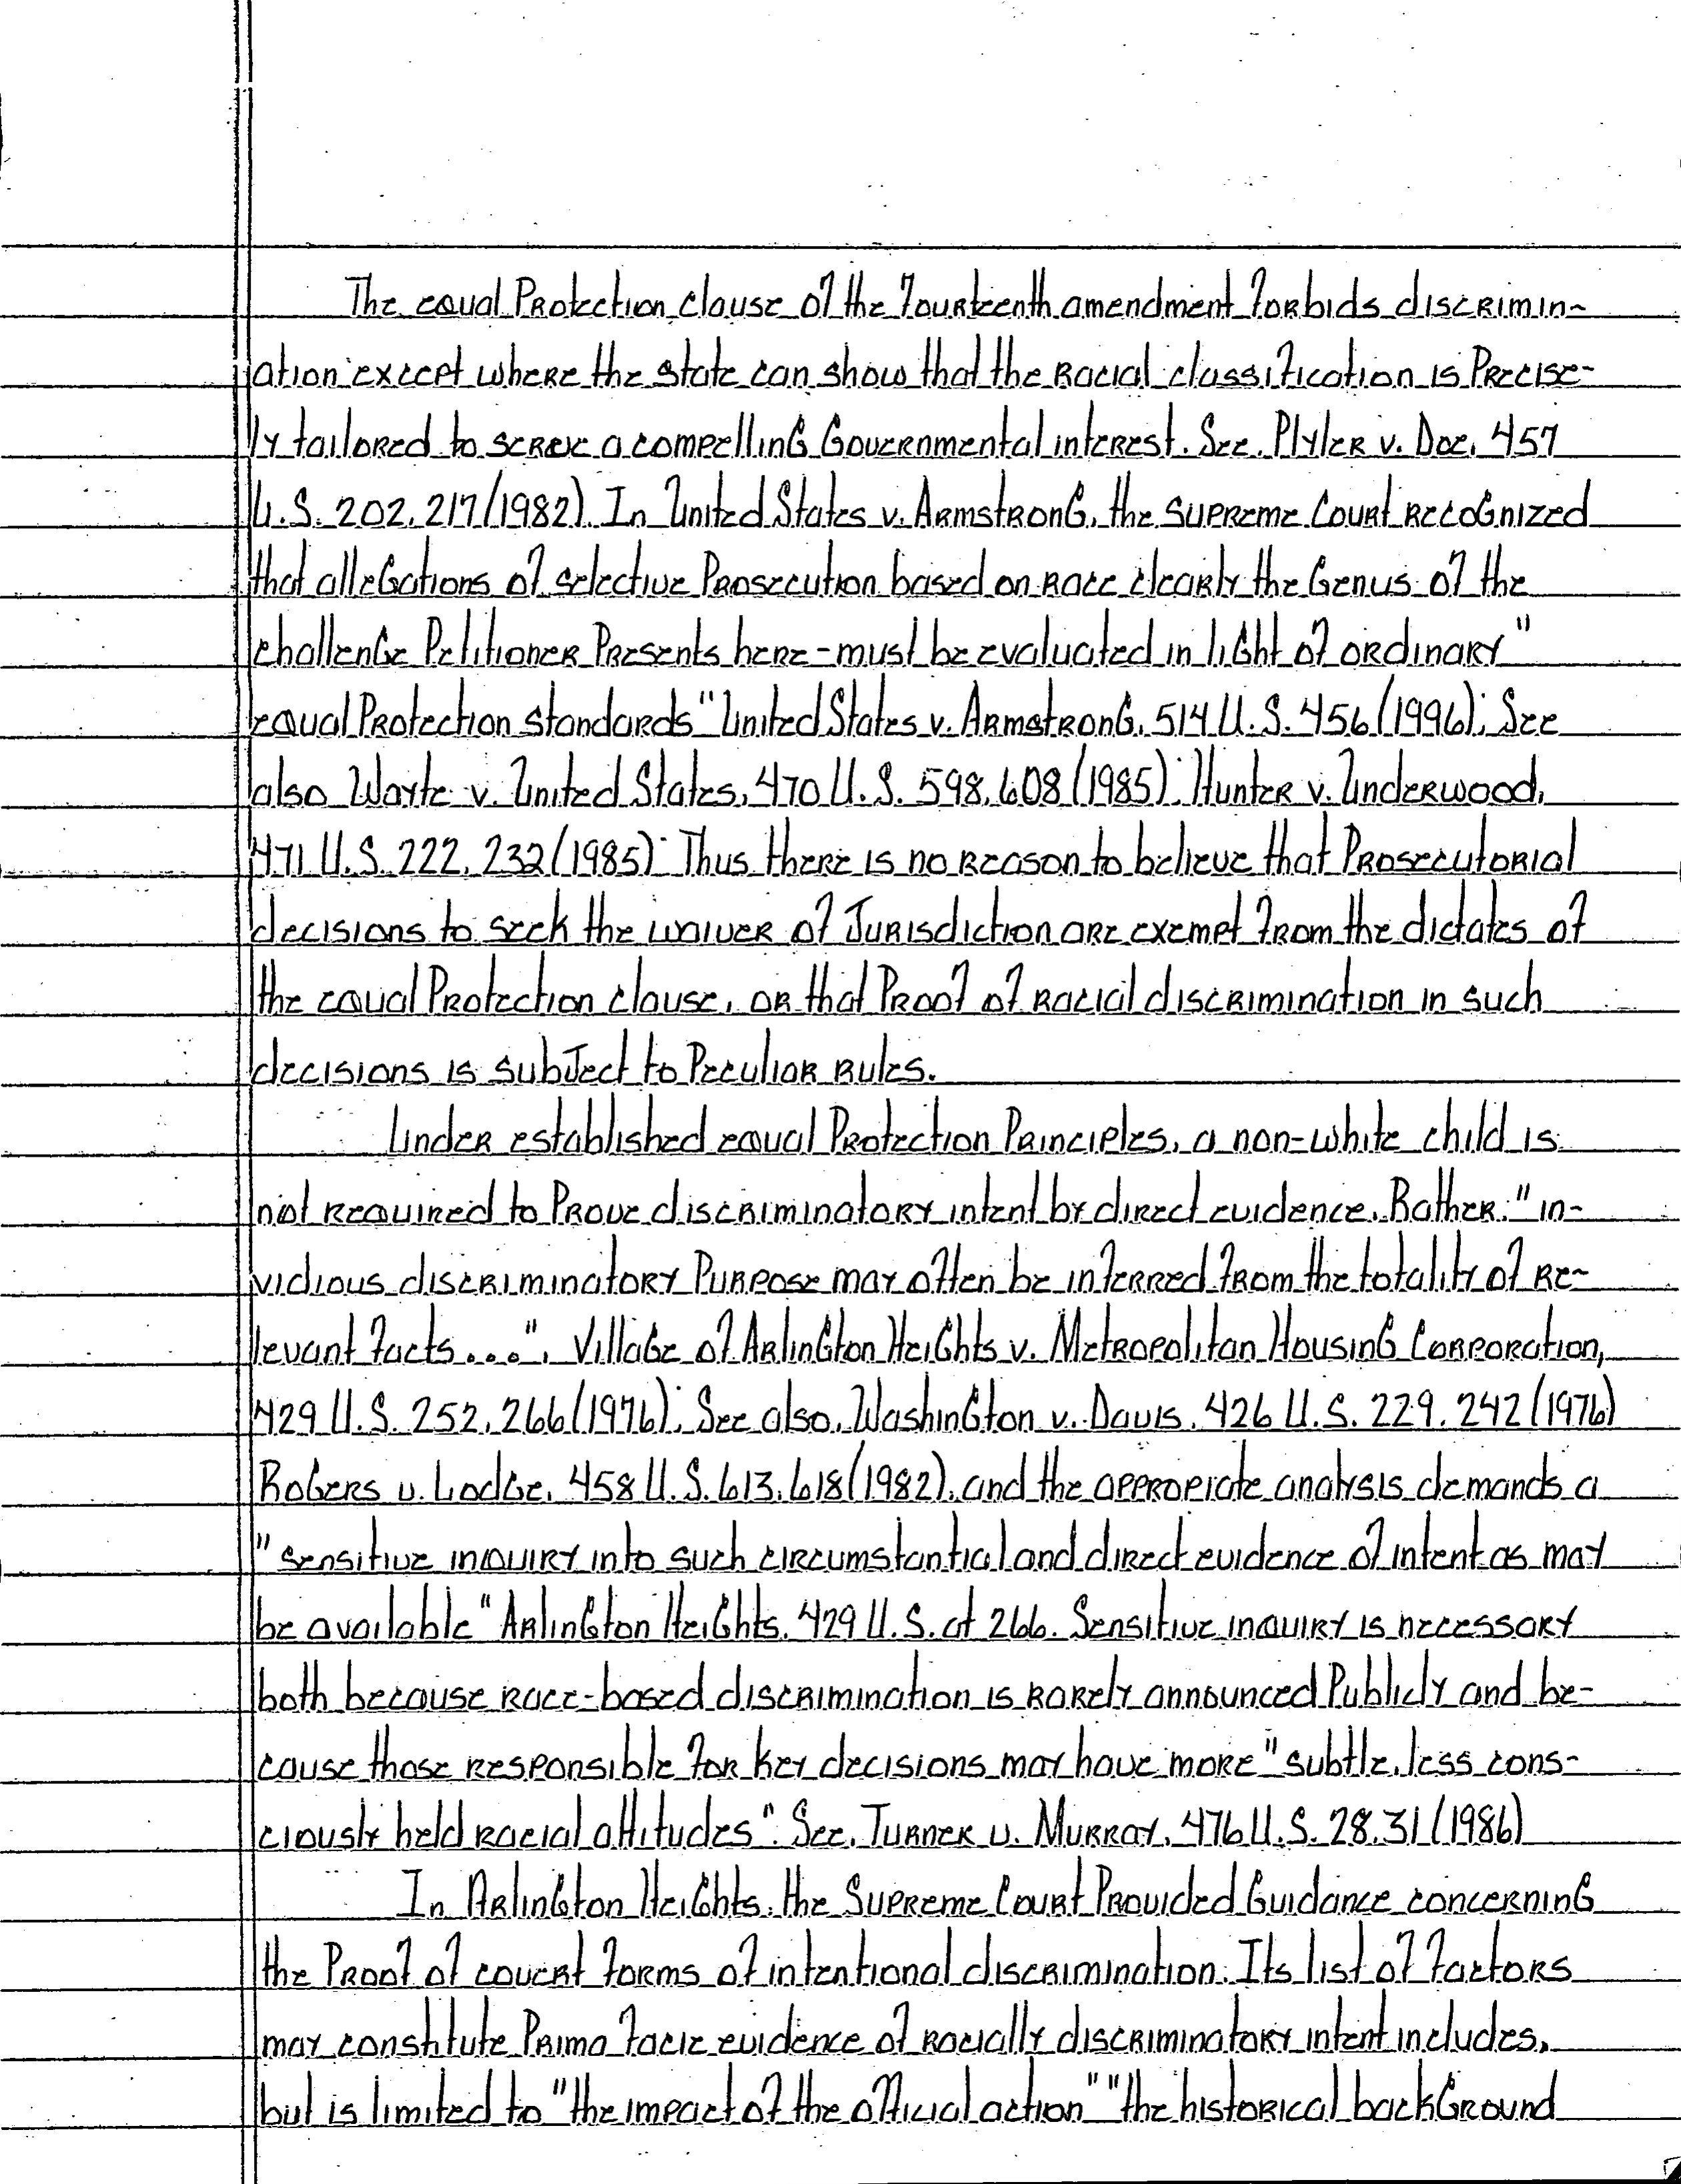 The equal Protection clause of the fourteenth amendment forbids discrimin-
ation except where the state can show that the Racial classification is Precise-
ly tailored to serve a compelling Governmental interest. See, Plyler v. Doe, 457
U.S. 202, 217 (1982). In United States v. Armstrong, the Supreme Court recognized
that allegations of selective Prosecution based on race clearly the Genus of the
challenge Petitioner Presents here-must be evaluated in light of ordinary"
equal Protection standards" United States v. Armstrong, 514 U.S. 456 (1996); See
also Wayte v. United States, 470 U.S. 598, 608 (1985); Hunter v. Underwood,
471 U.S. 222, 232 (1985). Thus there is no reason to believe that Prosecutorial
decisions to seek the waiver of Jurisdiction are exempt from the dictates of
the equal Protection clause, or that Proof of racial discrimination in such
decisions is subJect to Peculiar Rules.
Under established equal Protection Principles, a non-white child is
not required to Prove discriminatory intent by direct evidence. Rather: "in-
vidious discriminatory Purpose may often be inferred from the totality of re-
levant facts...", Village of Arlington Heights v. Metropolitan Housing Corporation,
429 U.S. 252, 266 (1976); See also, Washington v. Davis, 426 U.S. 229, 242 (1976)
Rogers v. Lodge, 458 U.S. 613, 618 (1982), and the appropiate analysis demands a
"sensitive inquiry into such circumstantial and direct evidence of intent as may
be available" Arlington Heights, 429 U.S. at 266. Sensitive inquiry is necessary
both because race-based discrimination is rarely announced Publicly and be-
cause those responsible for key decisions may have more "subtle, less cons-
ciously held racial attitudes". See, Turner v. Murray, 476 U.S. 28, 31 (1986)
In Arlington Heights, the Supreme Court Provided Guidance concerning
the Proof of covert forms of intentional discrimination. Its list of factors
may constitute Prima facie evidence of racially discriminatory intent includes,
but is limited to "the impact of the official action" "the historical background